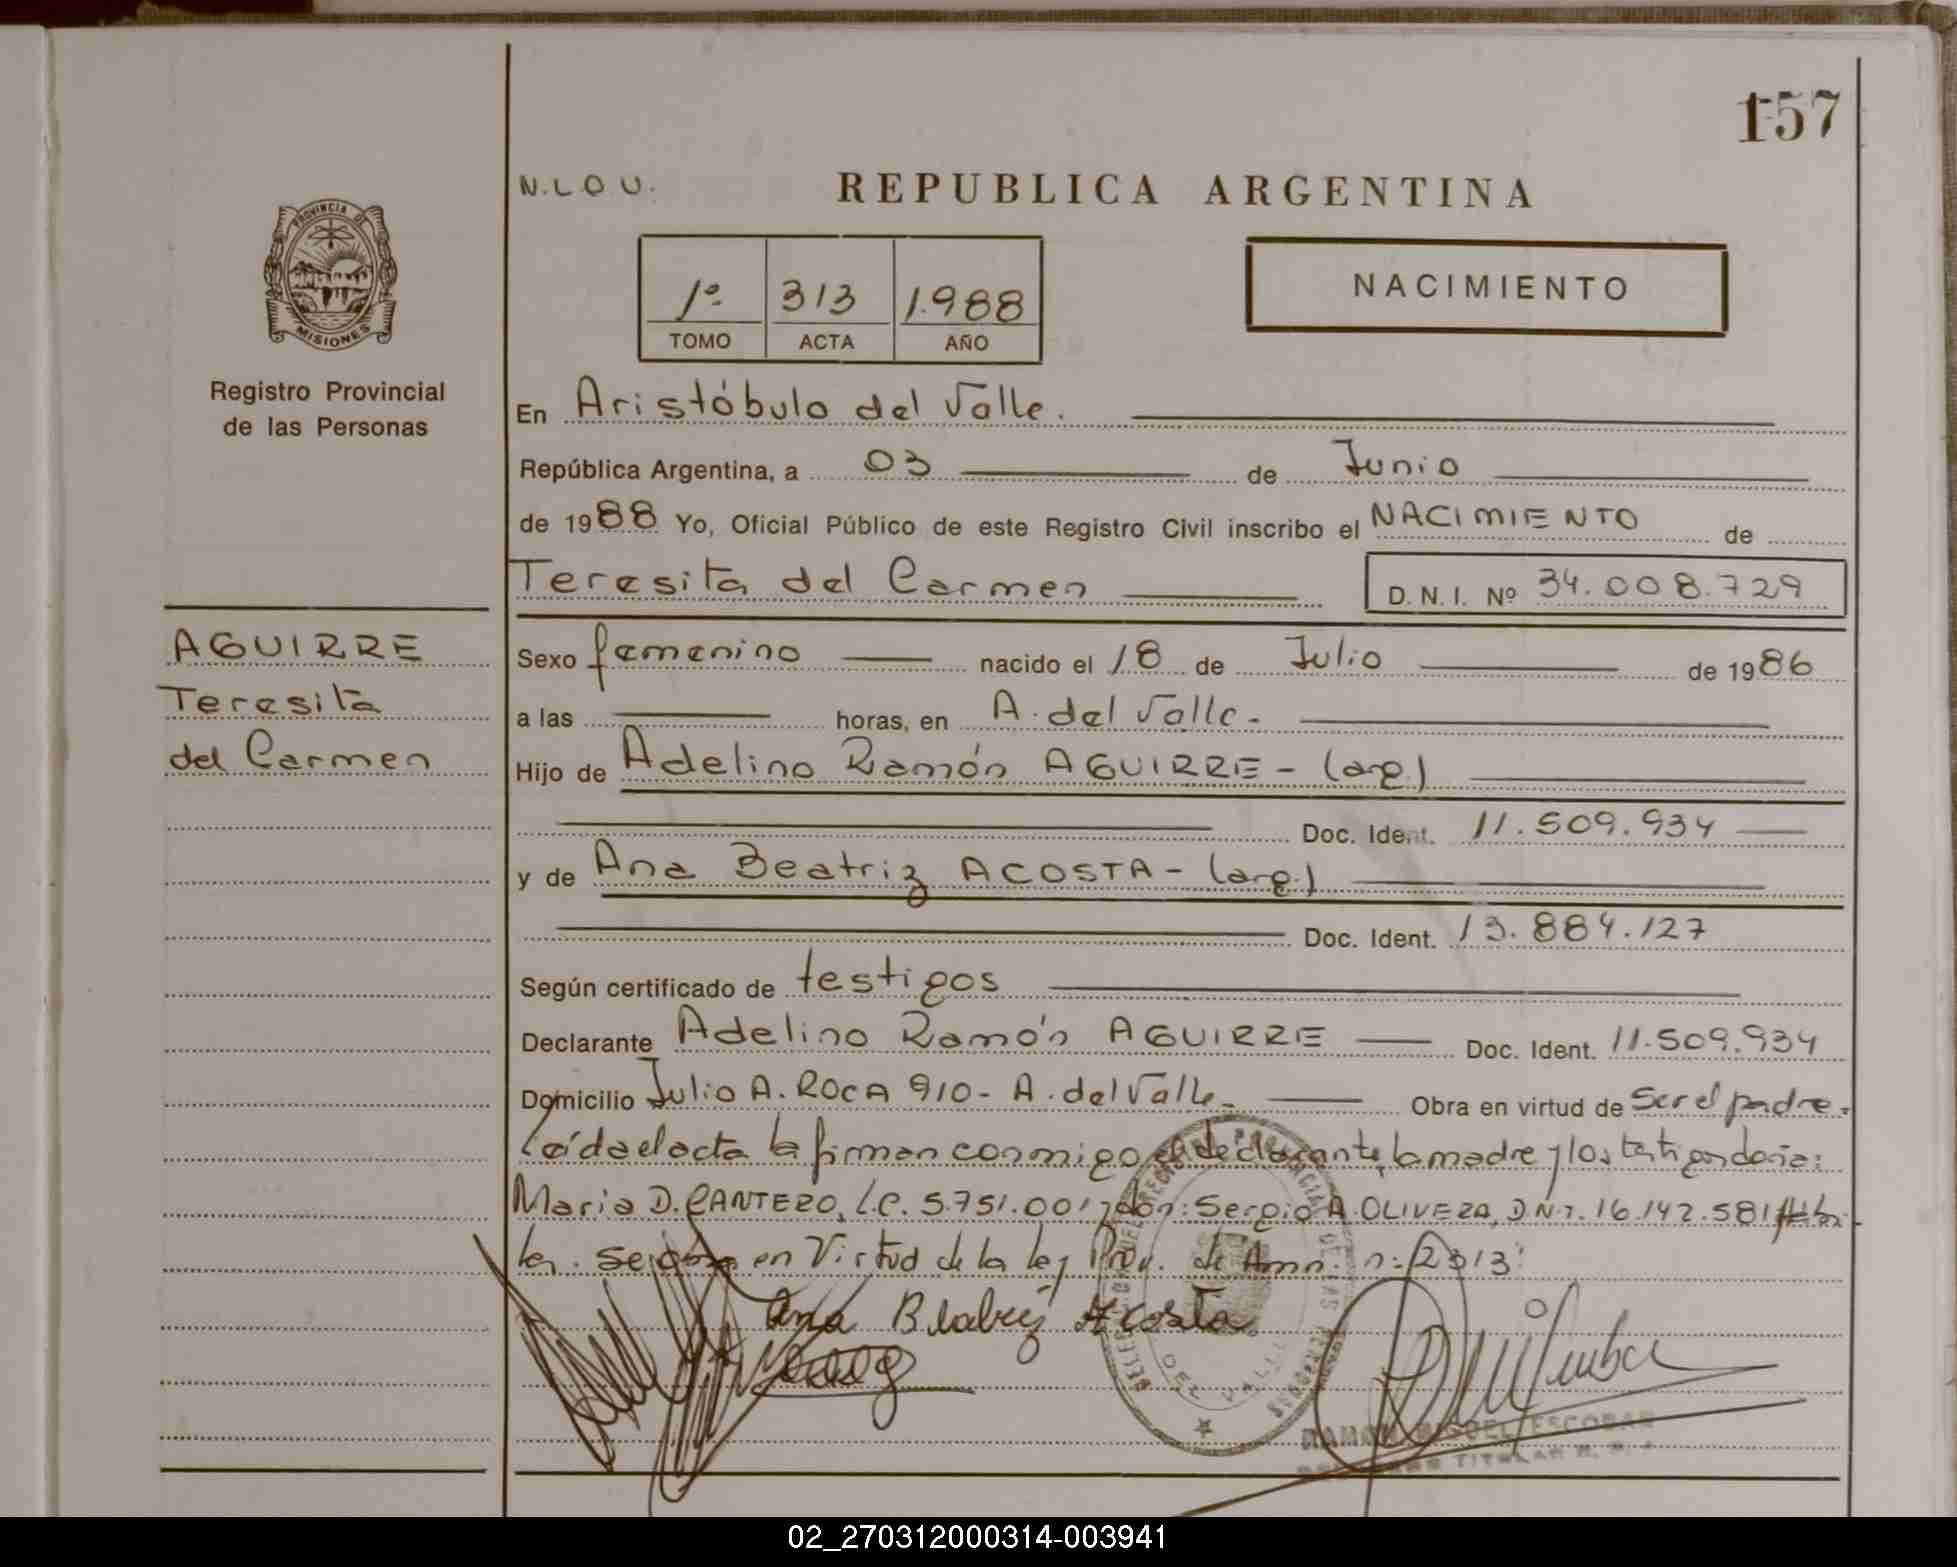 157
N.L O U.
REPUBLICA ARGENTINA
PROVINCIA DE
MISIONES
1º 313 1.988
TOMO ACTA AÑO
NACIMIENTO
Registro Provincial
de las Personas
En Aristóbulo del Valle.
República Argentina, a 03 de Junio
de 1988 Yo, Oficial Público de este Registro Civil inscribo el NACIMIENTO de
Teresita del Carmen D. N. I. Nº 34.008.729
AGUIRRE
Teresita
del Carmen
Sexo femenino nacido el 18 de Julio de 1986
a las horas, en A. del Valle.
Hijo de Adelino Ramón AGUIRRE - (arg.)
Doc. Ident. 11.509.934
y de Ana Beatriz ACOSTA - (arg.)
Doc. Ident. 13.884.127
Según certificado de testigos
Declarante Adelino Ramón AGUIRRE Doc. Ident. 11.509.934
Domicilio Julio A. ROCA 910 - A. del Valle. Obra en virtud de Ser el padre.
Leída el acta la firman conmigo el declarante, la madre y los testigos doña:
Maria D. CANTERO, L.C. 5.751.001 y don: Sergio A. OLIVERA, D.N.I. 16.142.581
en Virtud de la ley Prov. de Amn. n: 2313
Ana Beatriz Acosta
DEL VALLE
RAMON MIGUEL ESCOBAR
TITULAR
02_270312000314-003941